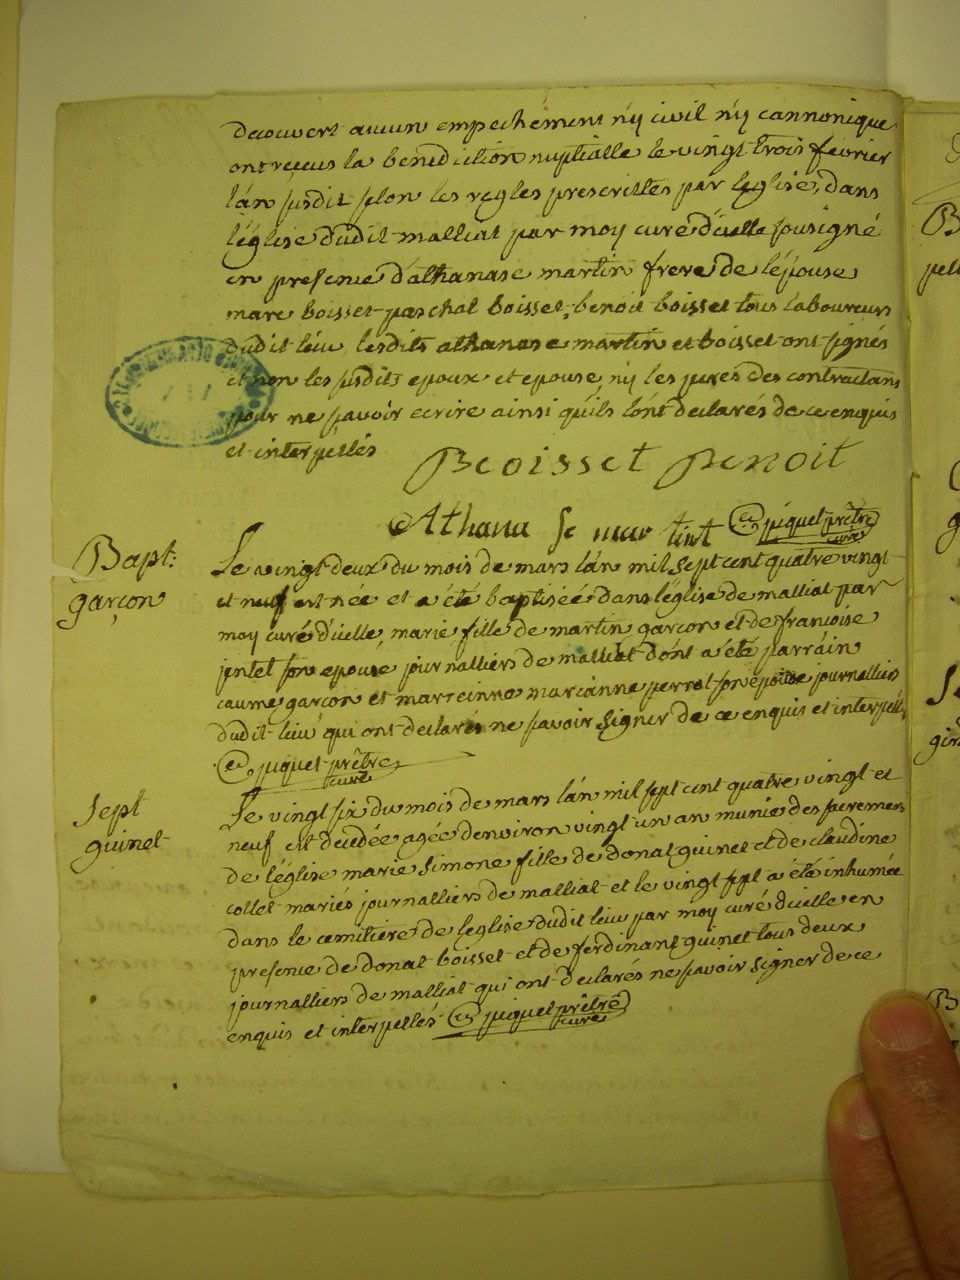 decouvert aucun empechement nÿ civil nÿ cannonique
ont reçus la benediction nuptialle le vingt trois fevrier
lán susdit selon les regles prescrittes par léglise, dans
léglise dudit malliat par moÿ curé dicelle sousigné
en presence dathanase martin frere de lépouse
marc boisset paschal boisset, benoit boisset tous laboureurs
dudit lieu lesdits athanase martin et boisset ont signés
et non les susdits epoux et epouse, nÿ les peres des contractans
pour ne sçavoir ecrire ainsi quils lont declarés de ce enquis
et interpellés
Beoisset Benoit
Athana se mar tint
piquet prêtre
curé
Bapt:
garçon
Le vingt deux du mois de mars lán mil sept cent quatre vingt
et neuf est née et a été baptisée dans léglise de malliat par
moÿ curé dicelle, marie fille de martin garçon et de francoise
jentet son epouse journalliers de malliat dont a été parráin
caume garçon et marreinne marianne perret son epouse journalliers
dudit lieu qui ont declarés ne sçavoir signer de ce enquis et interpellés
piquet prêtre
curé
Sept
guinet
Le vingt six du mois de mars lán mil sept cent quatre vingt et
neuf est decedée agée denviron vingt un an munie des sacremens
de léglise marie simone fille de donat guinet et de claudine
collet mariés journalliers de malliat et le vingt sept a été inhumée
dans le cemitiere de leglise dudit lieu par moÿ curé dicelle en
presence de donat boisset et de ferdinant guinet tous deux
journalliers de malliat qui ont declarés ne sçavoir signer de ce
enquis et interpellés piquet prêtre
curé